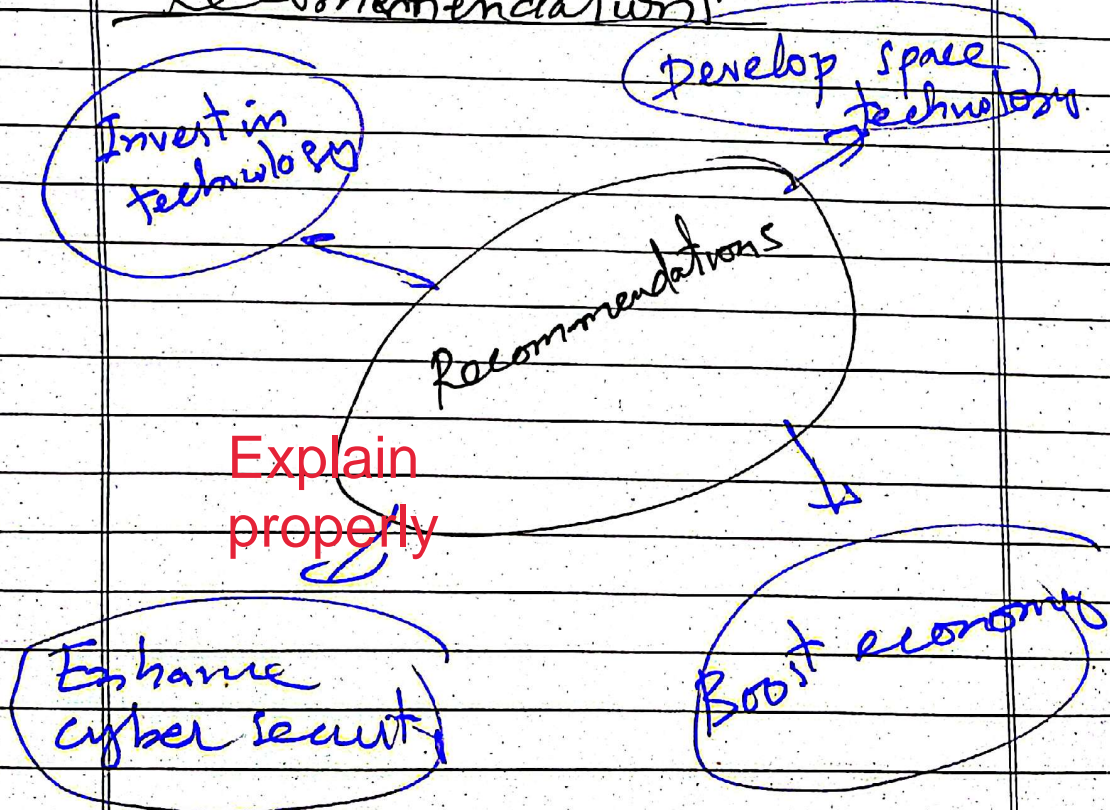 Recommendations
Develop space
technology.
Invest in
technology
Recommendations
Explain
properly
Enhance
cyber security
Boost economy